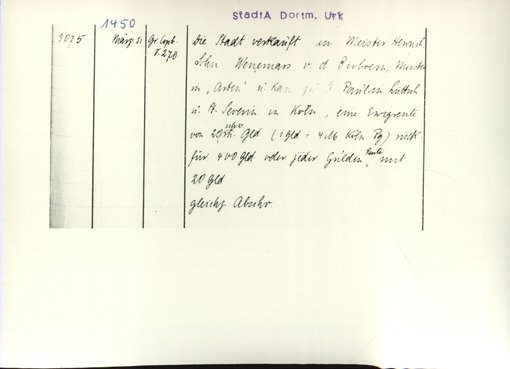 StadtA Dortm. Urk
1450
3075 März 31 Gr. Copb. I 270
Die Stadt verkauft an Meister Heinrich
Sohn Wenemars v. d. Meister
in „Arten" u. Kan. zu St. Paul in Lüttich
u. St. Severin in Köln, eine Erbrente
von 20 rh. Gld (1 gld = 4 Köln. Pg) rück
für 400 Gld oder jeder Gulden Rente mit
20 Gld
gleichz. Abschr.